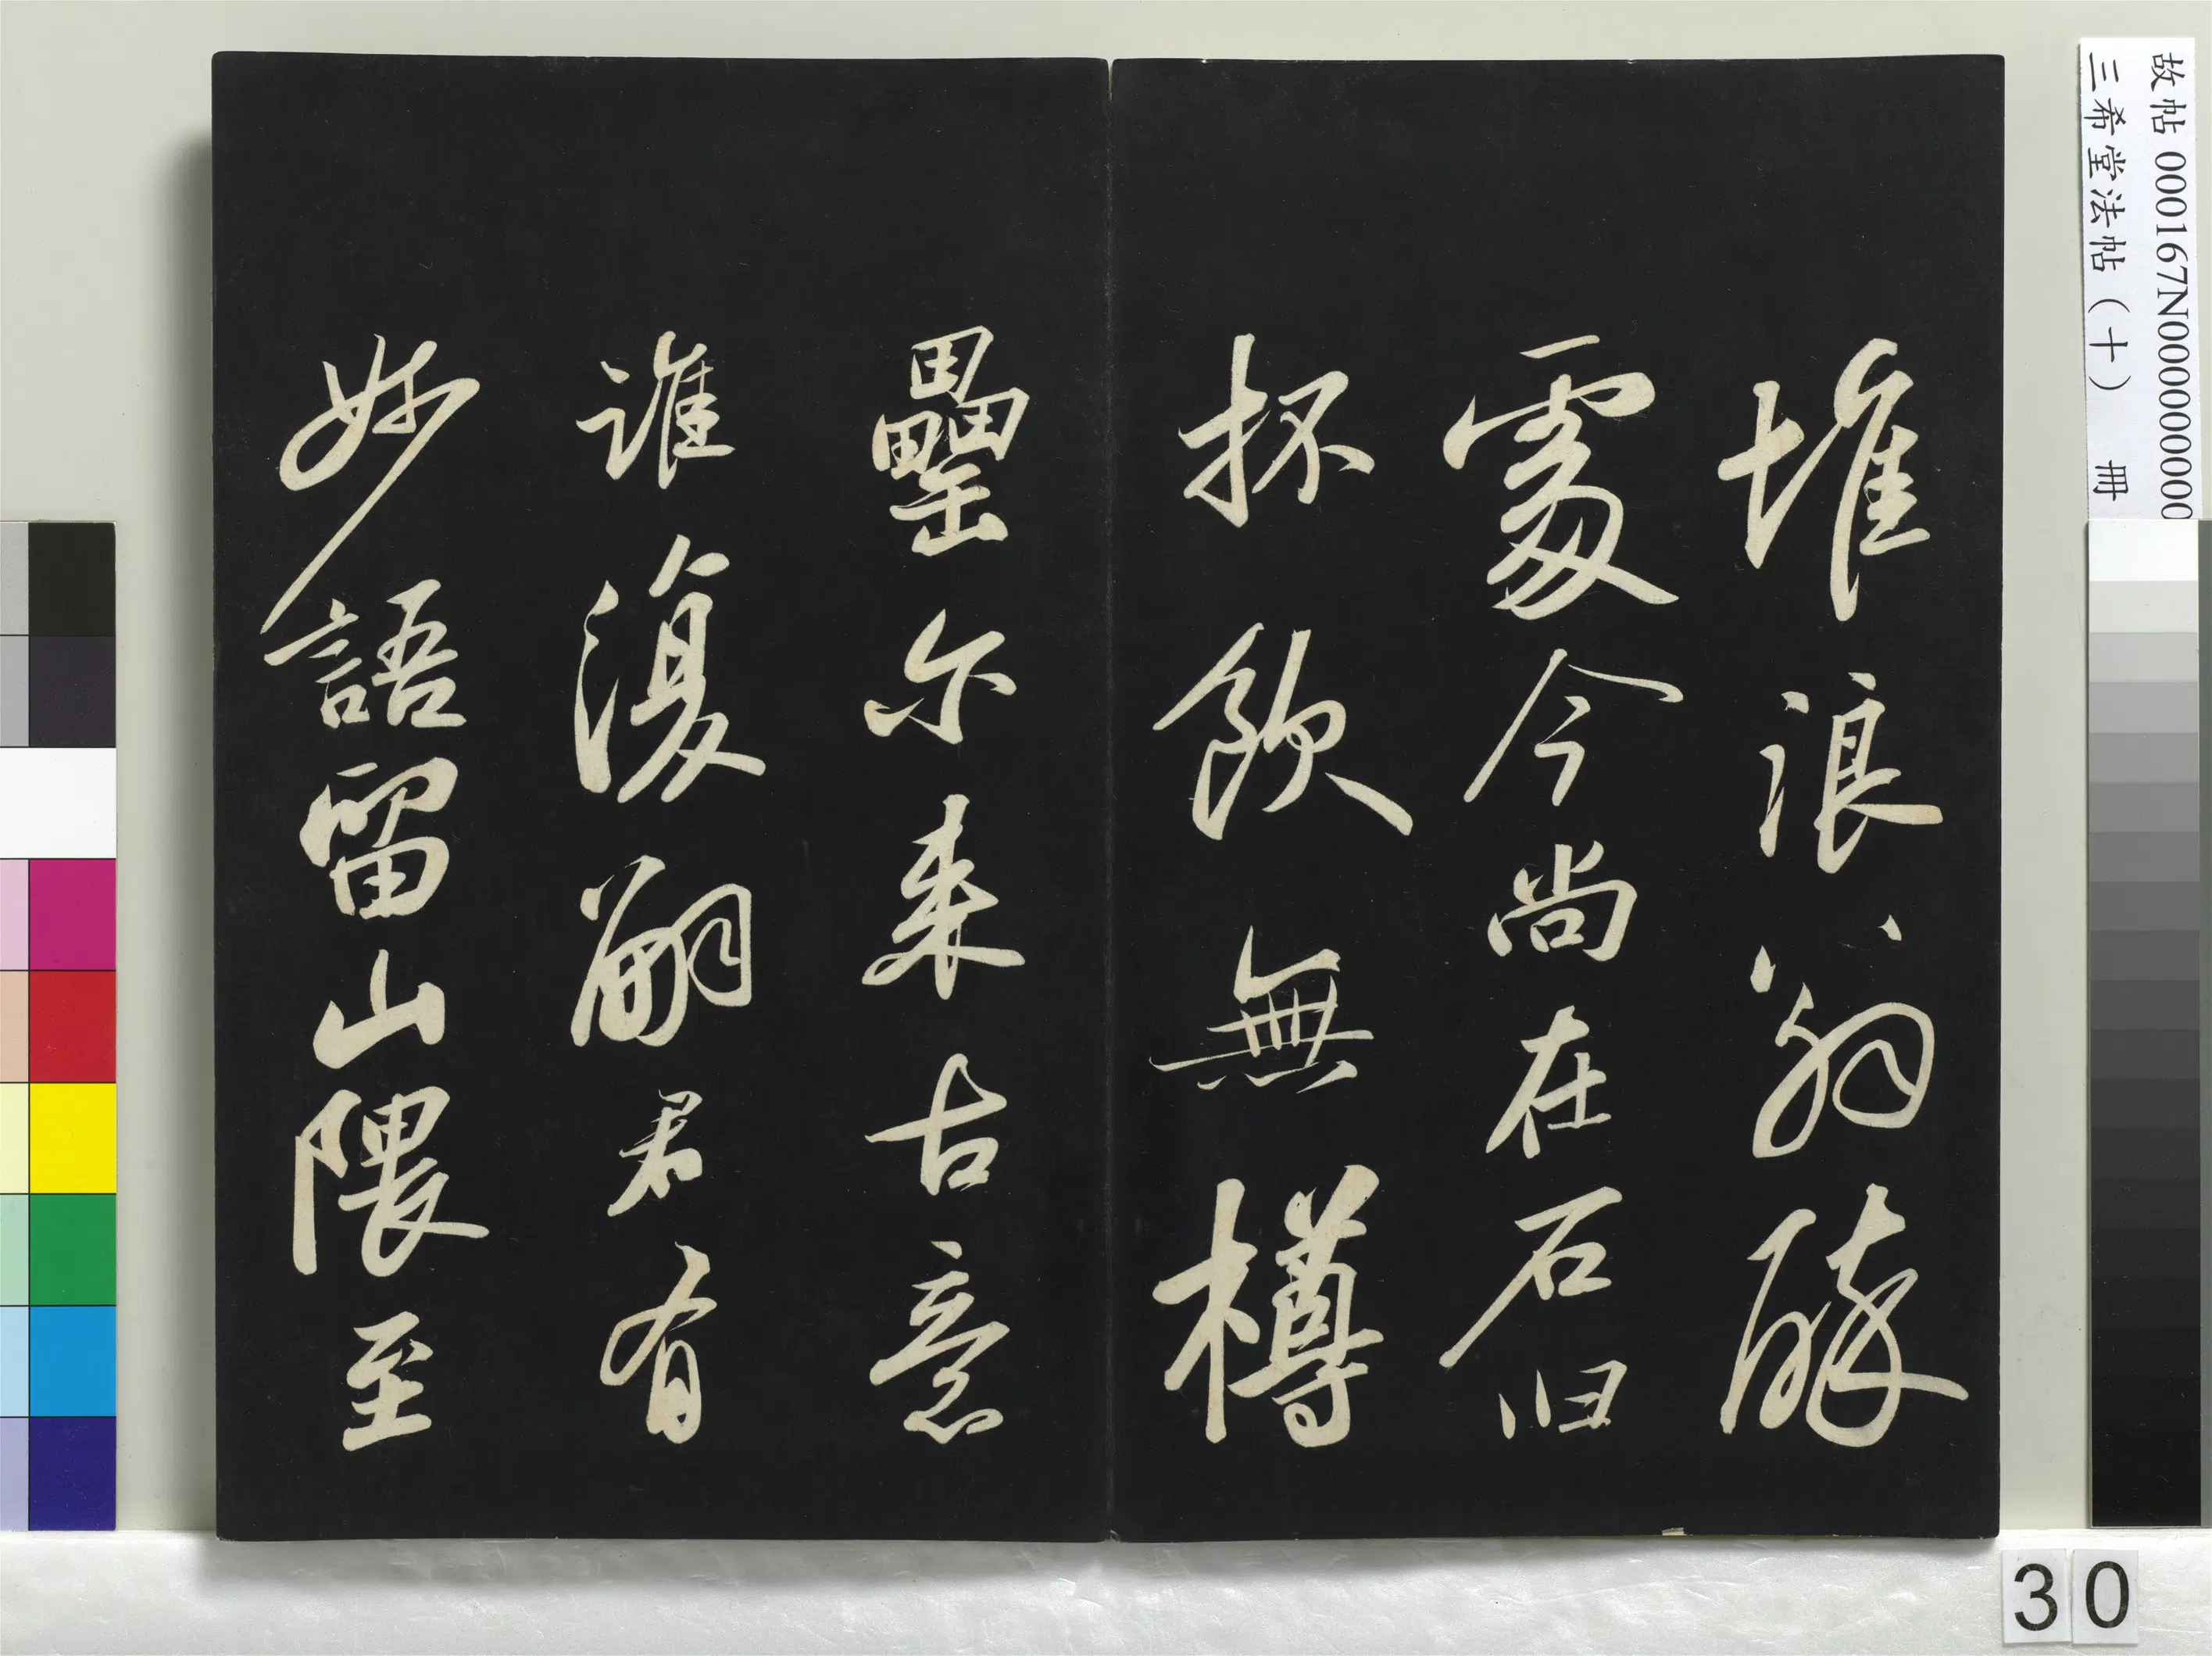 故帖 000167N000000000
三希堂法帖(十) 冊
堆浪翁醉
處今尚在石臼
抔飲無樽
罍尔来古意
誰復嗣君有
妙語留山隈至
30